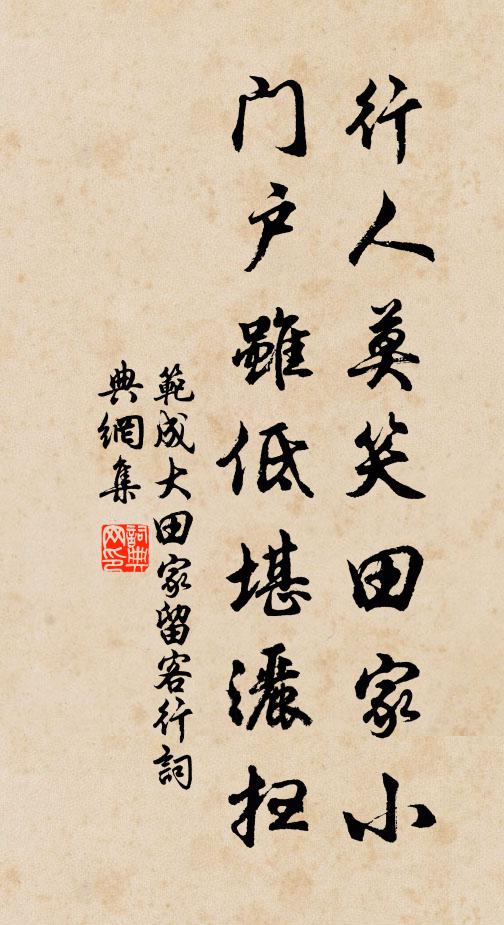 行人莫笑田家小
门户雖低堪灑扫
範成大田家留客行詞
典網集
詞典
网印